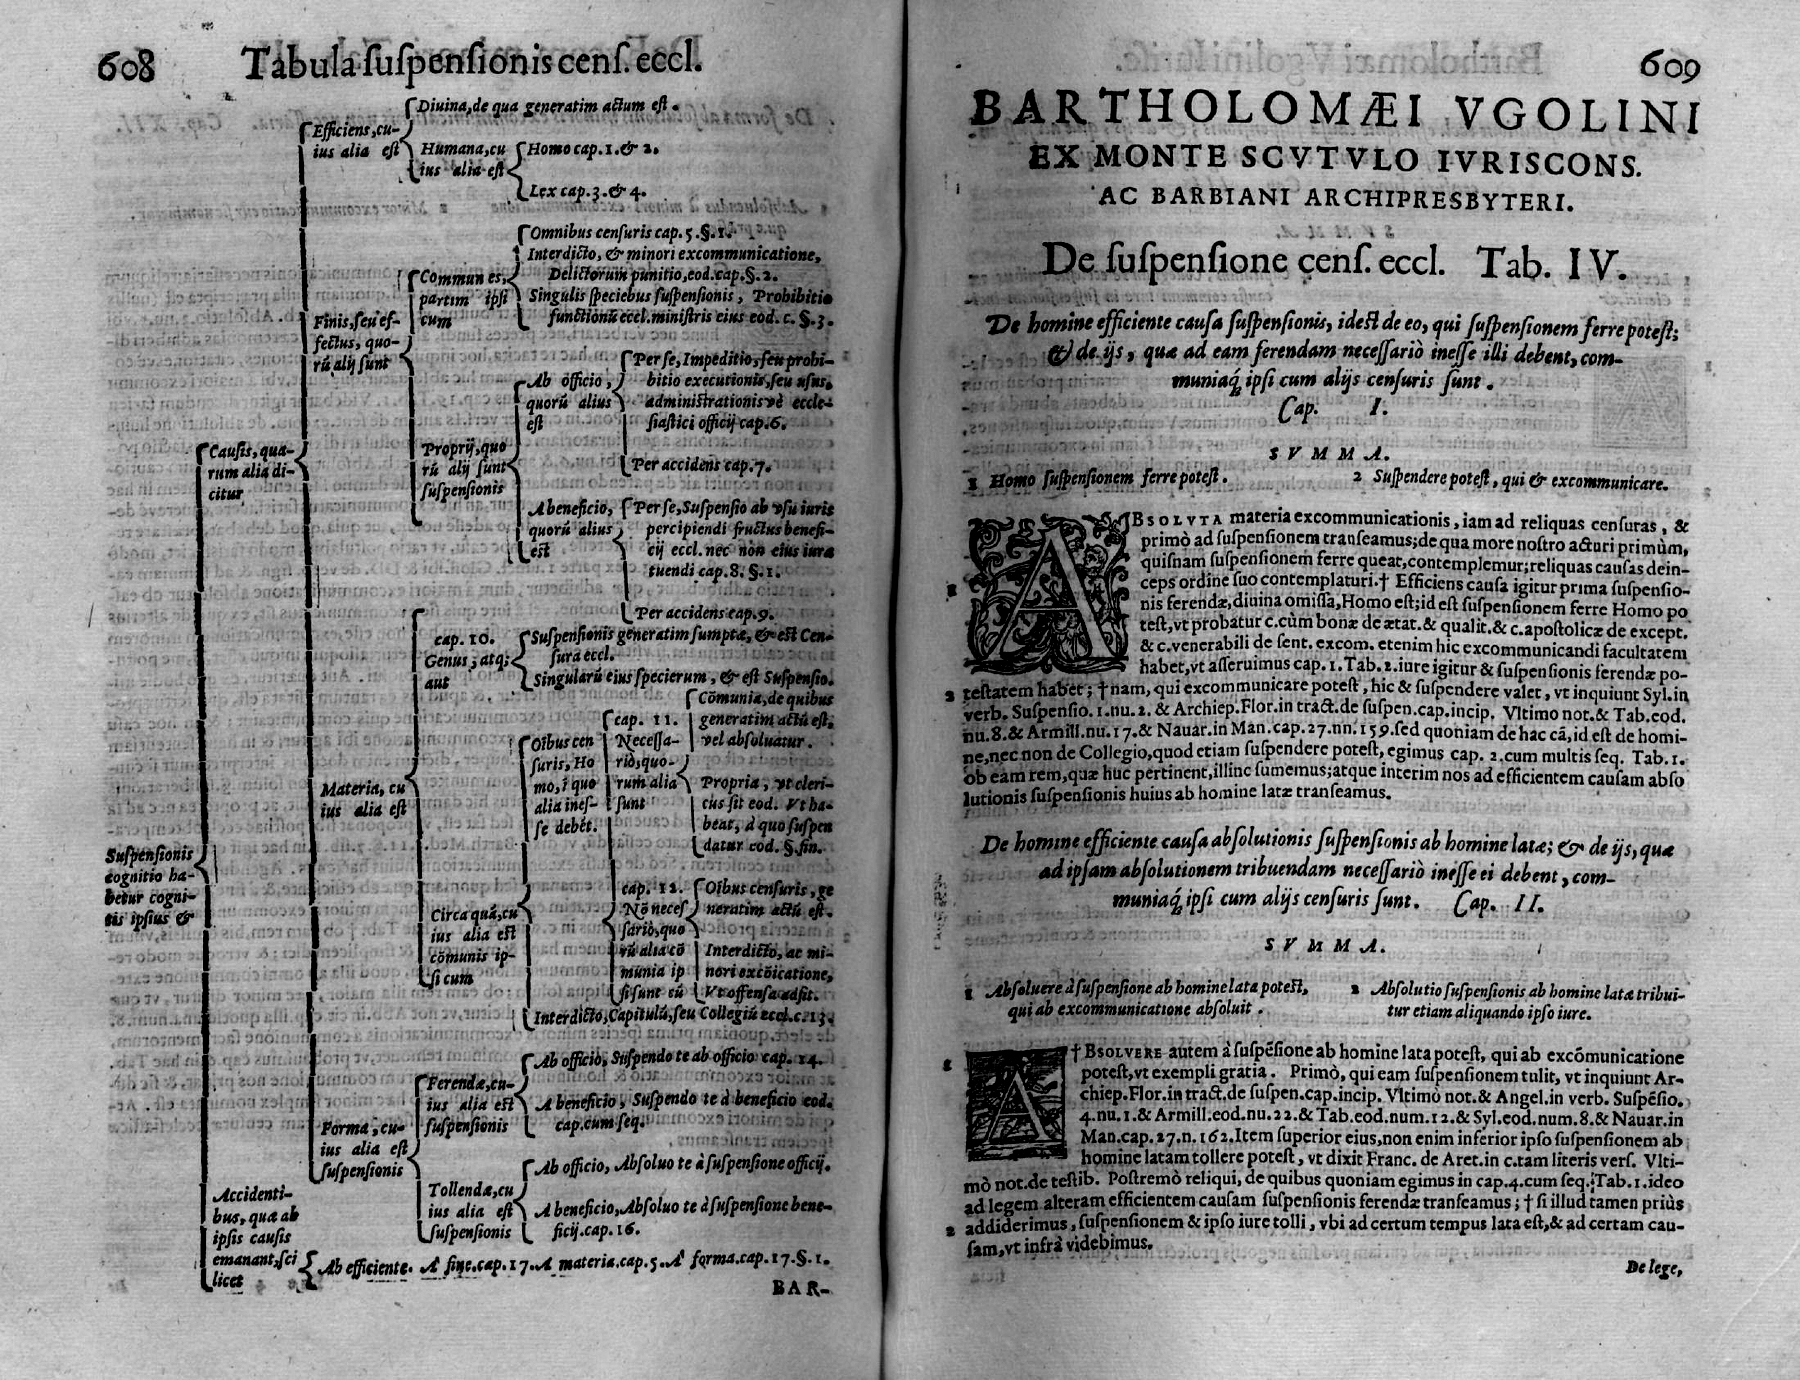 608
Tabula suspensionis cens. eccl.
Diuina, de qua generatim actum est.
Efficiens, cu-
ius alia est
Humana, cu
ius alia est
Homo cap. 1. & 2.
Lex cap. 3. & 4.
Omnibus censuris cap. 5. §. 1.
Interdicto, & minori excommunicatione,
Delictorum punitio, eod. cap. §. 2.
Communes,
partim ipsi
cum
Singulis speciebus suspensionis, Prohibitio
functionũ eccl. ministris eius eod. c. §. 3.
Finis, seu ef-
fectus, quo-
rũ alij sunt
Per se, Impeditio, seu prohi-
bitio executionis, seu usus,
administrationis vè eccle-
siastici officij cap. 6.
Ab officio,
quorũ alius
est
Per accidens cap. 7.
Proprij, quo
rũ alij sunt
suspensionis
A beneficio,
quorũ alius
est
Per se, Suspensio ab vsu iuris
percipiendi fructus benefi-
cij eccl. nec non eius iura
tuendi cap. 8. §. 1.
Per accidens cap. 9.
Causis, qua-
rum alia di-
citur
cap. 10.
Genus; atq;
aut
Suspensionis generatim sumptæ, & est Cen-
sura eccl.
Singularũ eius specierum, & est Suspensio.
Materia, cu
ius alia est
Oĩbus cen
suris, Ho
mo, ĩ quo
alia ines-
se debēt.
cap. 11.
Necessa-
riò, quo-
rum alia
sunt
Cõmunia, de quibus
generatim actũ est,
vel absoluatur.
Propria, vt cleri-
cus sit eod. Vt ha-
beat, à quo suspen
datur eod. §. fin.
Circa quã, cu
ius alia est
cõmunis ip-
si cum
cap. 12.
Nõ neces
sariò, quo
rũ alia cõ
munia ip
si sunt cũ
Oĩbus censuris, ge
neratim actũ est.
Interdicto, ac mi-
nori excõicatione,
Vt offensa adsit.
Interdicto, Capitulũ, seu Collegiũ eccl. c. 13.
Suspensionis
cognitio ha-
betur cogni-
tis ipsius &
Forma, cu-
ius alia est
suspensionis
Ferendæ, cu-
ius alia est
suspensionis
Ab officio, Suspendo te ab officio cap. 14.
A beneficio, Suspendo te à beneficio eod.
cap. cum seq.
Tollendæ, cu
ius alia est
suspensionis
Ab officio, Absoluo te à suspensione officij.
A beneficio, Absoluo te à suspensione bene-
ficij. cap. 16.
Accidenti-
bus, quæ ab
ipsis causis
emanant, sci
licet
Ab efficiente. A fine. cap. 17. A materia. cap. 5. A forma. cap. 17. §. 1.
BAR-
609
BARTHOLOMÆI VGOLINI
EX MONTE SCVTVLO IVRISCONS.
AC BARBIANI ARCHIPRESBYTERI.
De suspensione cens. eccl. Tab. IV.
De homine efficiente causa suspensionis, idest de eo, qui suspensionem ferre potest;
& de ijs, quæ ad eam ferendam necessariò inesse illi debent, com-
muniaq́; ipsi cum alijs censuris sunt.
Cap. I.
SVMMA.
1 Homo suspensionem ferre potest. 2 Suspendere potest, qui & excommunicare.
ABSOLVTA materia excommunicationis, iam ad reliquas censuras, &
primò ad suspensionem transeamus; de qua more nostro acturi primùm,
quisnam suspensionem ferre queat, contemplemur; reliquas causas dein-
ceps ordine suo contemplaturi. † Efficiens causa igitur prima suspensio-
1 nis ferendæ, diuina omissa, Homo est; id est suspensionem ferre Homo po
test, vt probatur c. cùm bonæ de ætat. & qualit. & c. apostolicæ de except.
& c. venerabili de sent. excom. etenim hic excommunicandi facultatem
habet, vt asseruimus cap. 1. Tab. 2. iure igitur & suspensionis ferendæ po-
2 testatem habet; † nam, qui excommunicare potest, hic & suspendere valet, vt inquiunt Syl. in
verb. Suspensio. 1. nu. 2. & Archiep. Flor. in tract. de suspen. cap. incip. Vltimo not. & Tab. eod.
nu. 8. & Armill. nu. 17. & Nauar. in Man. cap. 27. nn. 159. sed quoniam de hac cã, id est de homi-
ne, nec non de Collegio, quod etiam suspendere potest, egimus cap. 2. cum multis seq. Tab. 1.
ob eam rem, quæ huc pertinent, illinc sumemus; atque interim nos ad efficientem causam abso
lutionis suspensionis huius ab homine latæ transeamus.
De homine efficiente causa absolutionis suspensionis ab homine latæ; & de ijs, quæ
ad ipsam absolutionem tribuendam necessariò inesse ei debent, com-
muniaq́; ipsi cum alijs censuris sunt. Cap. II.
SVMMA.
1 Absoluere à suspensione ab homine lata potest,
qui ab excommunicatione absoluit.
2 Absolutio suspensionis ab homine latæ tribui-
tur etiam aliquando ipso iure.
1 A † BSOLVERE autem à suspēsione ab homine lata potest, qui ab excõmunicatione
potest, vt exempli gratia. Primò, qui eam suspensionem tulit, vt inquiunt Ar-
chiep. Flor. in tract. de suspen. cap. incip. Vltimo not. & Angel. in verb. Suspēsio.
4. nu. 1. & Armill. eod. nu. 22. & Tab. eod. num. 12. & Syl. eod. num. 8. & Nauar. in
Man. cap. 27. n. 162. Item superior eius, non enim inferior ipso suspensionem ab
homine latam tollere potest, vt dixit Franc. de Aret. in c. tam literis vers. Vlti-
mò not. de testib. Postremò reliqui, de quibus quoniam egimus in cap. 4. cum seq. Tab. 1. ideo
ad legem alteram efficientem causam suspensionis ferendæ transeamus; † si illud tamen priùs
2 addiderimus, suspensionem & ipso iure tolli, vbi ad certum tempus lata est, & ad certam cau-
sam, vt infrà videbimus.
De lege,